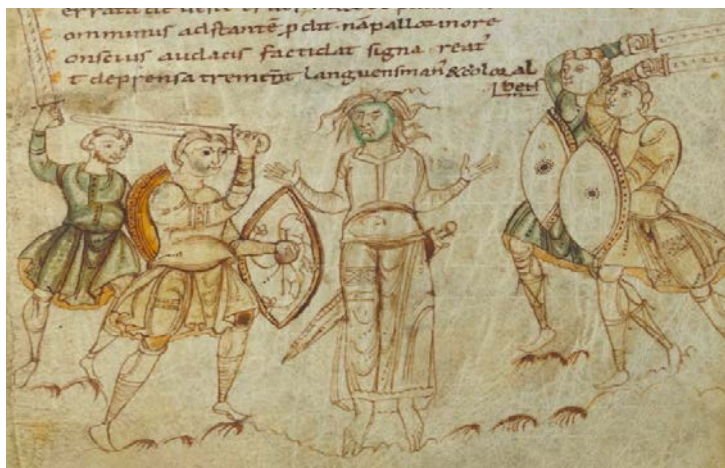 C omminus adstantē ꝓdit · nā pallor inore
C onscius audacis facti dat signa reatꝰ
E t deprensa tremit languens manꝰ & color al
bens